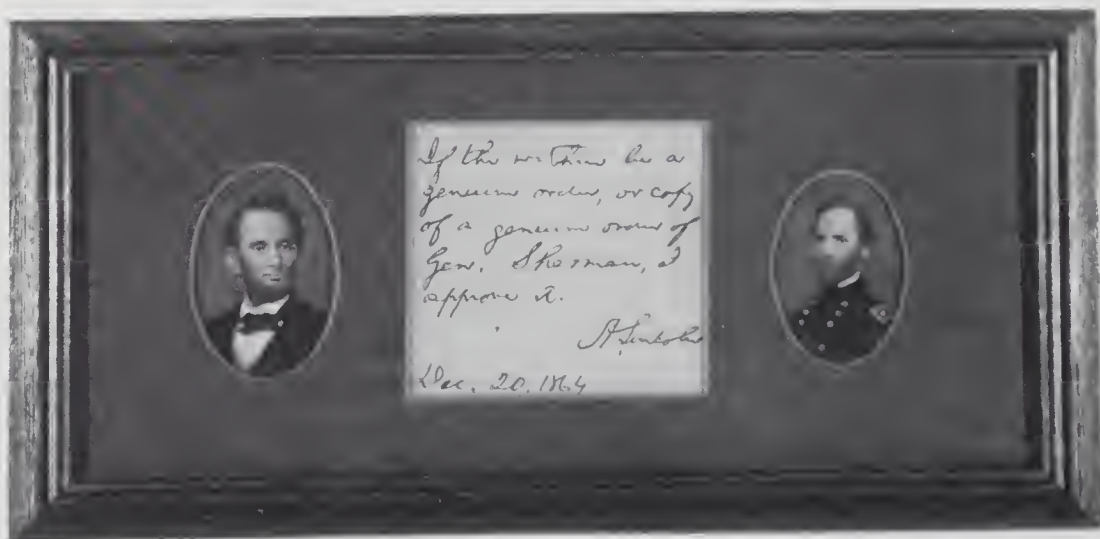 If the within be a
genuine order, or copy
of a genuine order of
Gen. Sherman, I
approve it.
A. Lincoln
Dec. 20. 1864